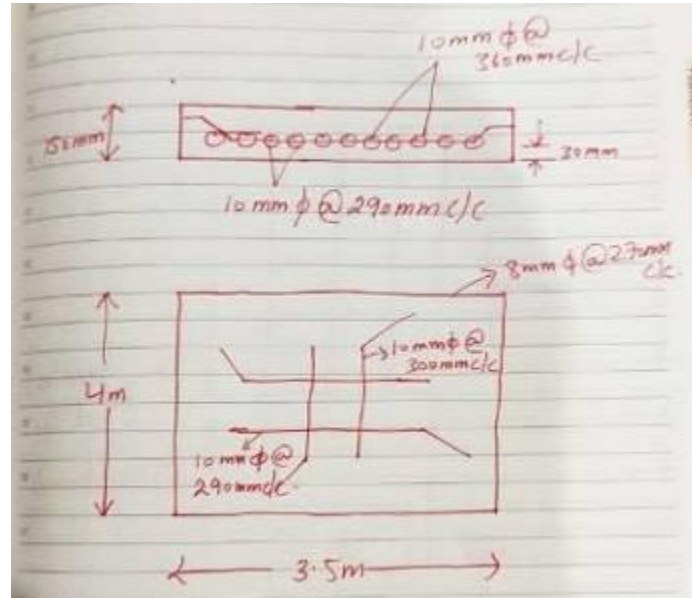 10mm ϕ @
360mm c/c
150mm
30mm
10mm ϕ @ 290mm c/c
8mm ϕ @ 270mm
c/c.
10mm ϕ @
300mm c/c
4m
10mm ϕ @
290mm c/c.
3.5m